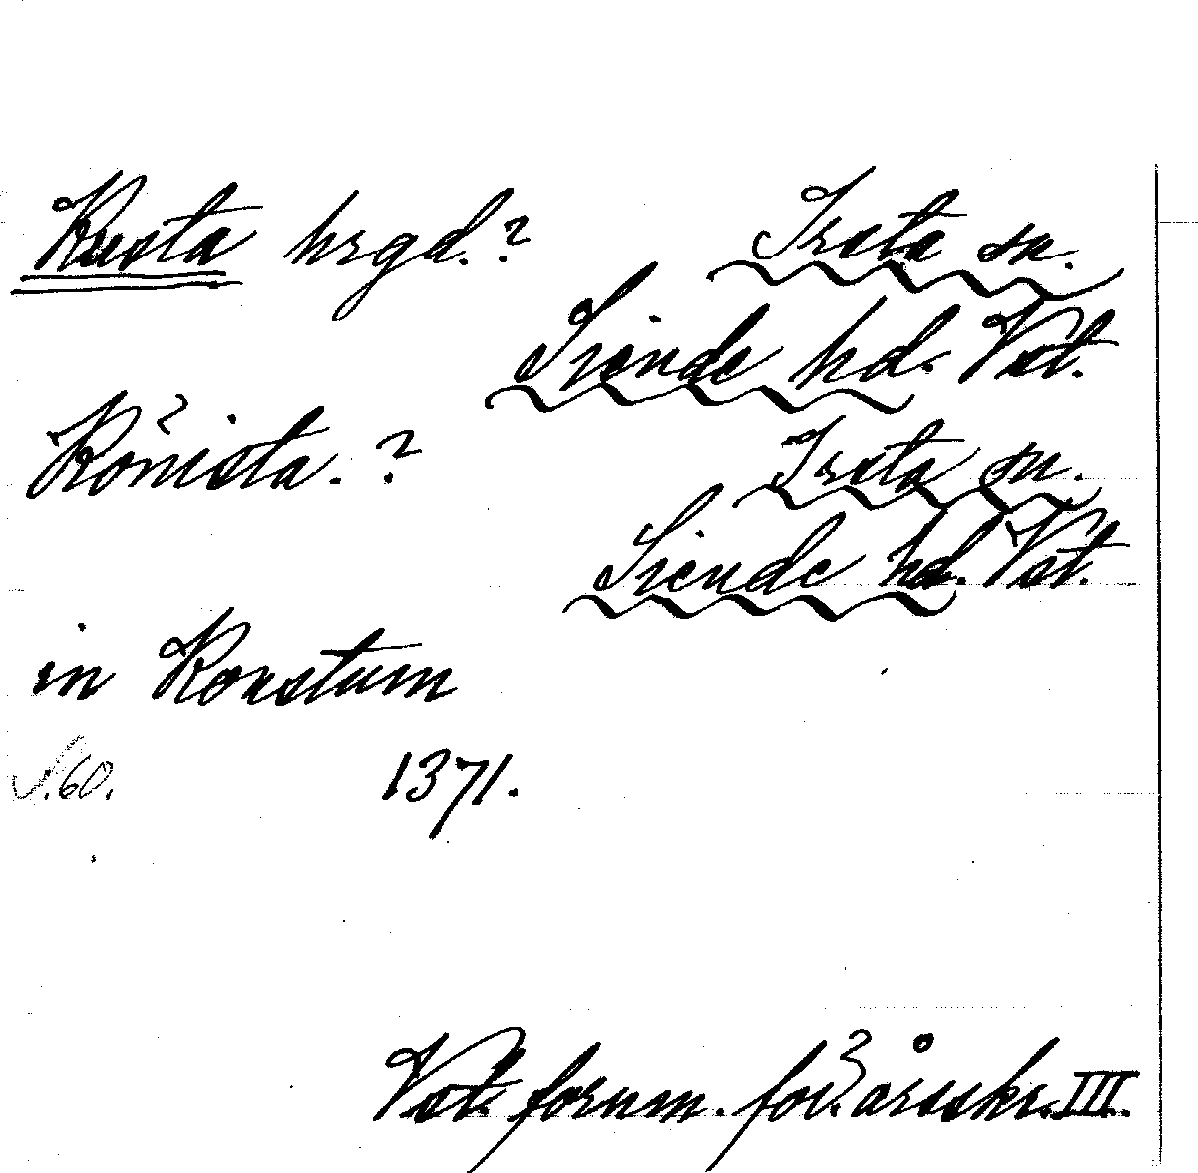 Kusta hrgd.? Irsta sn.
Siende hd. Vst.
Könista.? Irsta sn.
Siende hd. Vst.
in Konstum
S.60. 1371.
Vst. fornm. för. årsskr. III.